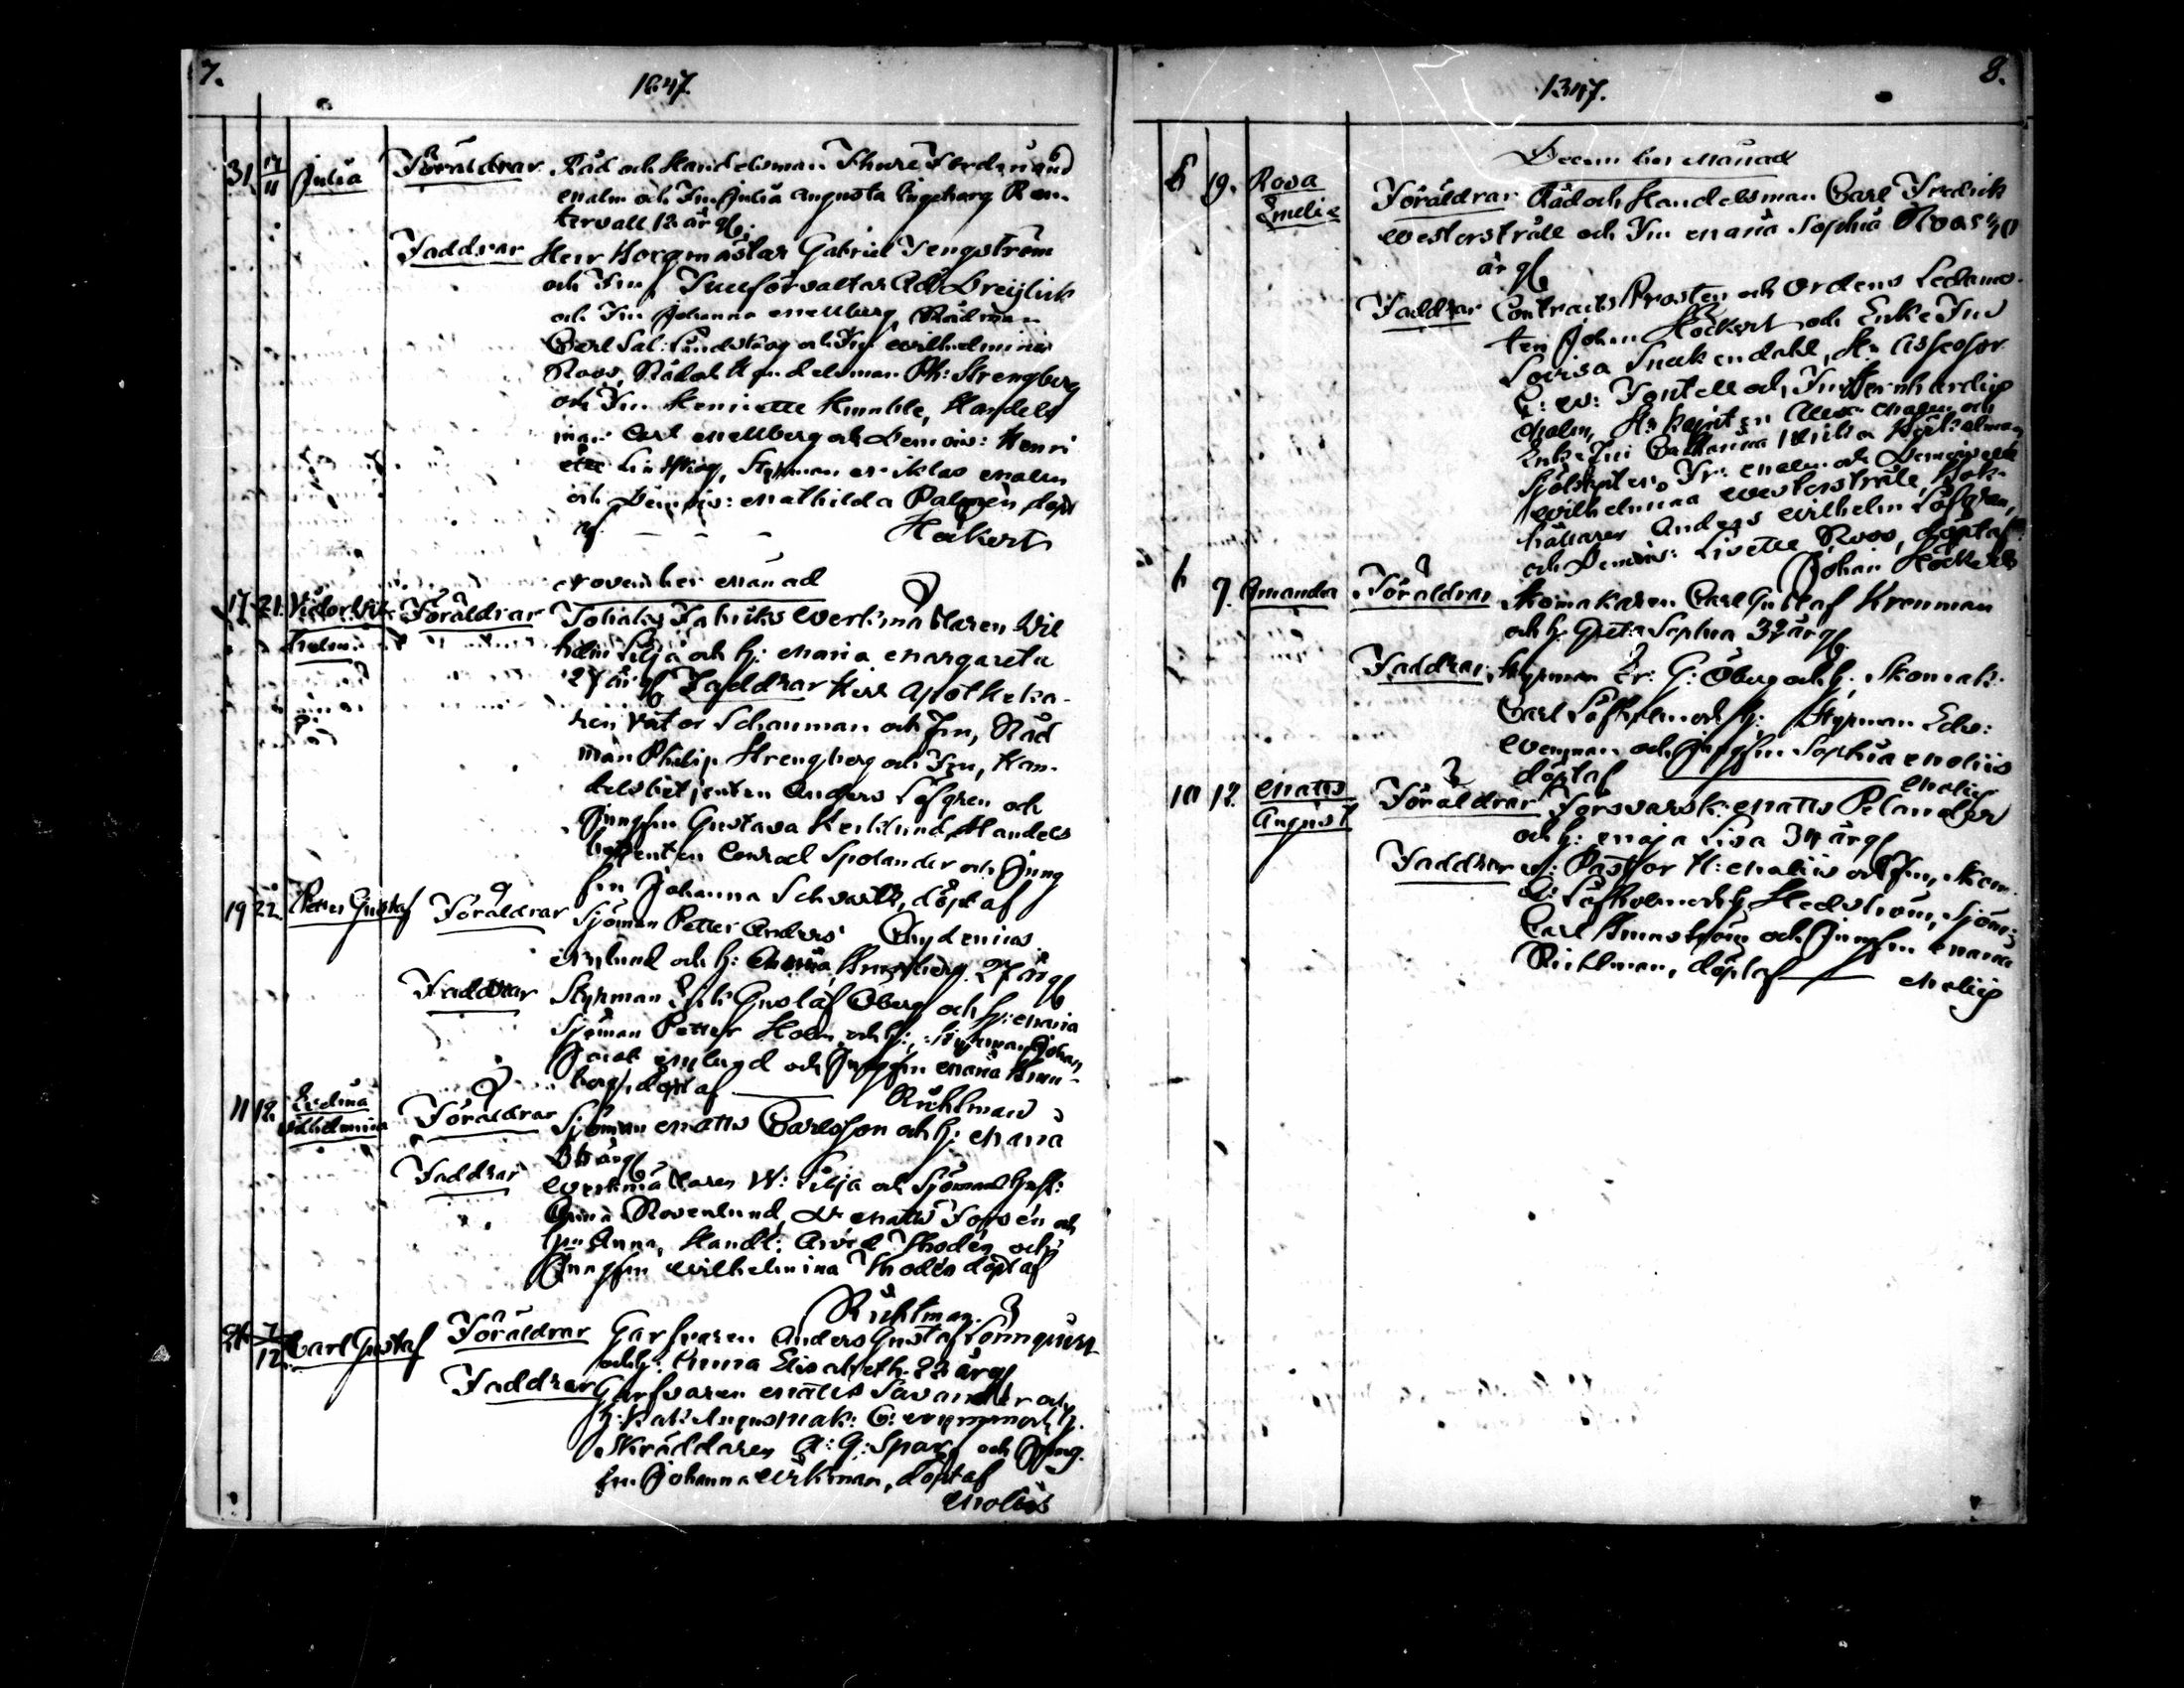 7.
1847.
31 14/11 Julia Föräldrar Råd och Handelsman Thure Ferdinand
Malm och Fru Julia Augusta Ingeborg Ren-
tervall 12 år gl:
Faddrar Herr Borgmästar Gabriel Tengström
och Fru, Tullförvaltar Ad: Dreijlick
och Fru Johanna Mellberg, Rådman
Carl Sal: Lundskog och Fru Wilhelmina
Roos, Råd och Handelsman Ph: Strengberg
och Fru Henriette Handels
man Carl Mellberg och Demois: Henri
ette Lindskog, Styrman Niklas Malm
och Demois: Mathilda Palmen döpt
af - - - Höckert
November Månad
17 21. Victor Wil- Föräldrar Tobaks Fabriks Werkmästaren Wil
helm helm Lilja och h: Maria Margareta
27 år gl Faddrar Herr Apotheka-
ren Victor Schauman och Fru, Råd
man Philip Strengberg och Fru, Han-
delsbetjenten Anders Löfgren och
Jungfru Gustava Kerklund, Handels
betjenten Conrad Spolander och Jung
fru Johanna Schvartz, döpt af
Chydenius.
19 22. Petter Gustaf Föräldrar Sjöman Petter Anders
Nylund och h: Maria 27 år gl
Faddrar Styrman Erik Gustaf Öberg och h: Maria
Sjöman Petter Holm och h:, Styrman Johan
Jacob och Jungfru Maria
berg, döpt af Rühlman
11 12. Edina Wilhelmina Föräldrar Sjöman Matts Carlsson och h: Maria
36 år gl
Faddrar Werkmästaren W: Lilja och Sjöman Hust:
Anna Rosenlund, Dr Matts Forsén och
Anna, Handl: Arvid Thodén och
Jungfru Wilhelmina Thodén döpt af
Rühlman.
7/12 Carl Gustaf Föräldrar Garfvaren Anders Gustaf Lönnquist
och h: Anna Elisabeth 22 år gl
Faddrar Garfvaren Matts Savander och
h: G: Nyman och h.
Skräddaren A: G: Sparf och Jung-
fru Johanna Wikman, döpt af
Molius
8.
1847.
December Månad
6 19. Rosa Emelie Föräldrar Råd och Handelsman Carl Fredrik
Westerstråle och Fru Maria Sophia Roos 40
år gl
Faddrar Contracts Prosten och Ordens Ledamo-
ten Johan Höckert och Enke Fru
Lovisa Snekendahl, Hr Assessor
C: W: Fontell och Fru Bernhardina
Malm, Hr Kapiten Alex. Malm och
Enke Fru Catharina
Sjökapten Fr: Malm och Demoiselle
Wilhelmina Westerstråle, Bok-
hållaren Anders Wilhelm Löfgren,
och Demois: Lisette Roos, döpt af
Johan Höckert
6 7. Amanda Föräldrar Skomakaren Carl Gustaf Krenman
och h: Greta Sophia 32 år gl
Faddrar, Styrman Er: G: Öberg och h:, Skomak:
Carl Löfholm och h:, Styrman Edv:
Wenman och Jungfru Sophia Molius
döptaf Molius
10 12. Matts August Föräldrar Försvarsk: Matts Pelander
och h: Maja Lisa 34 år gl
Faddrar v: Pastor H: Molius och Fru, Skom.
C: Löfholm och h, Hedström, Sjöm:
Carl Brunström och Jungfru Maria
Rühlman, döptaf Molius